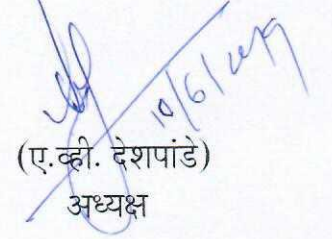 10/6/2019
(ए.व्ही. देशपांडे)
अध्यक्ष